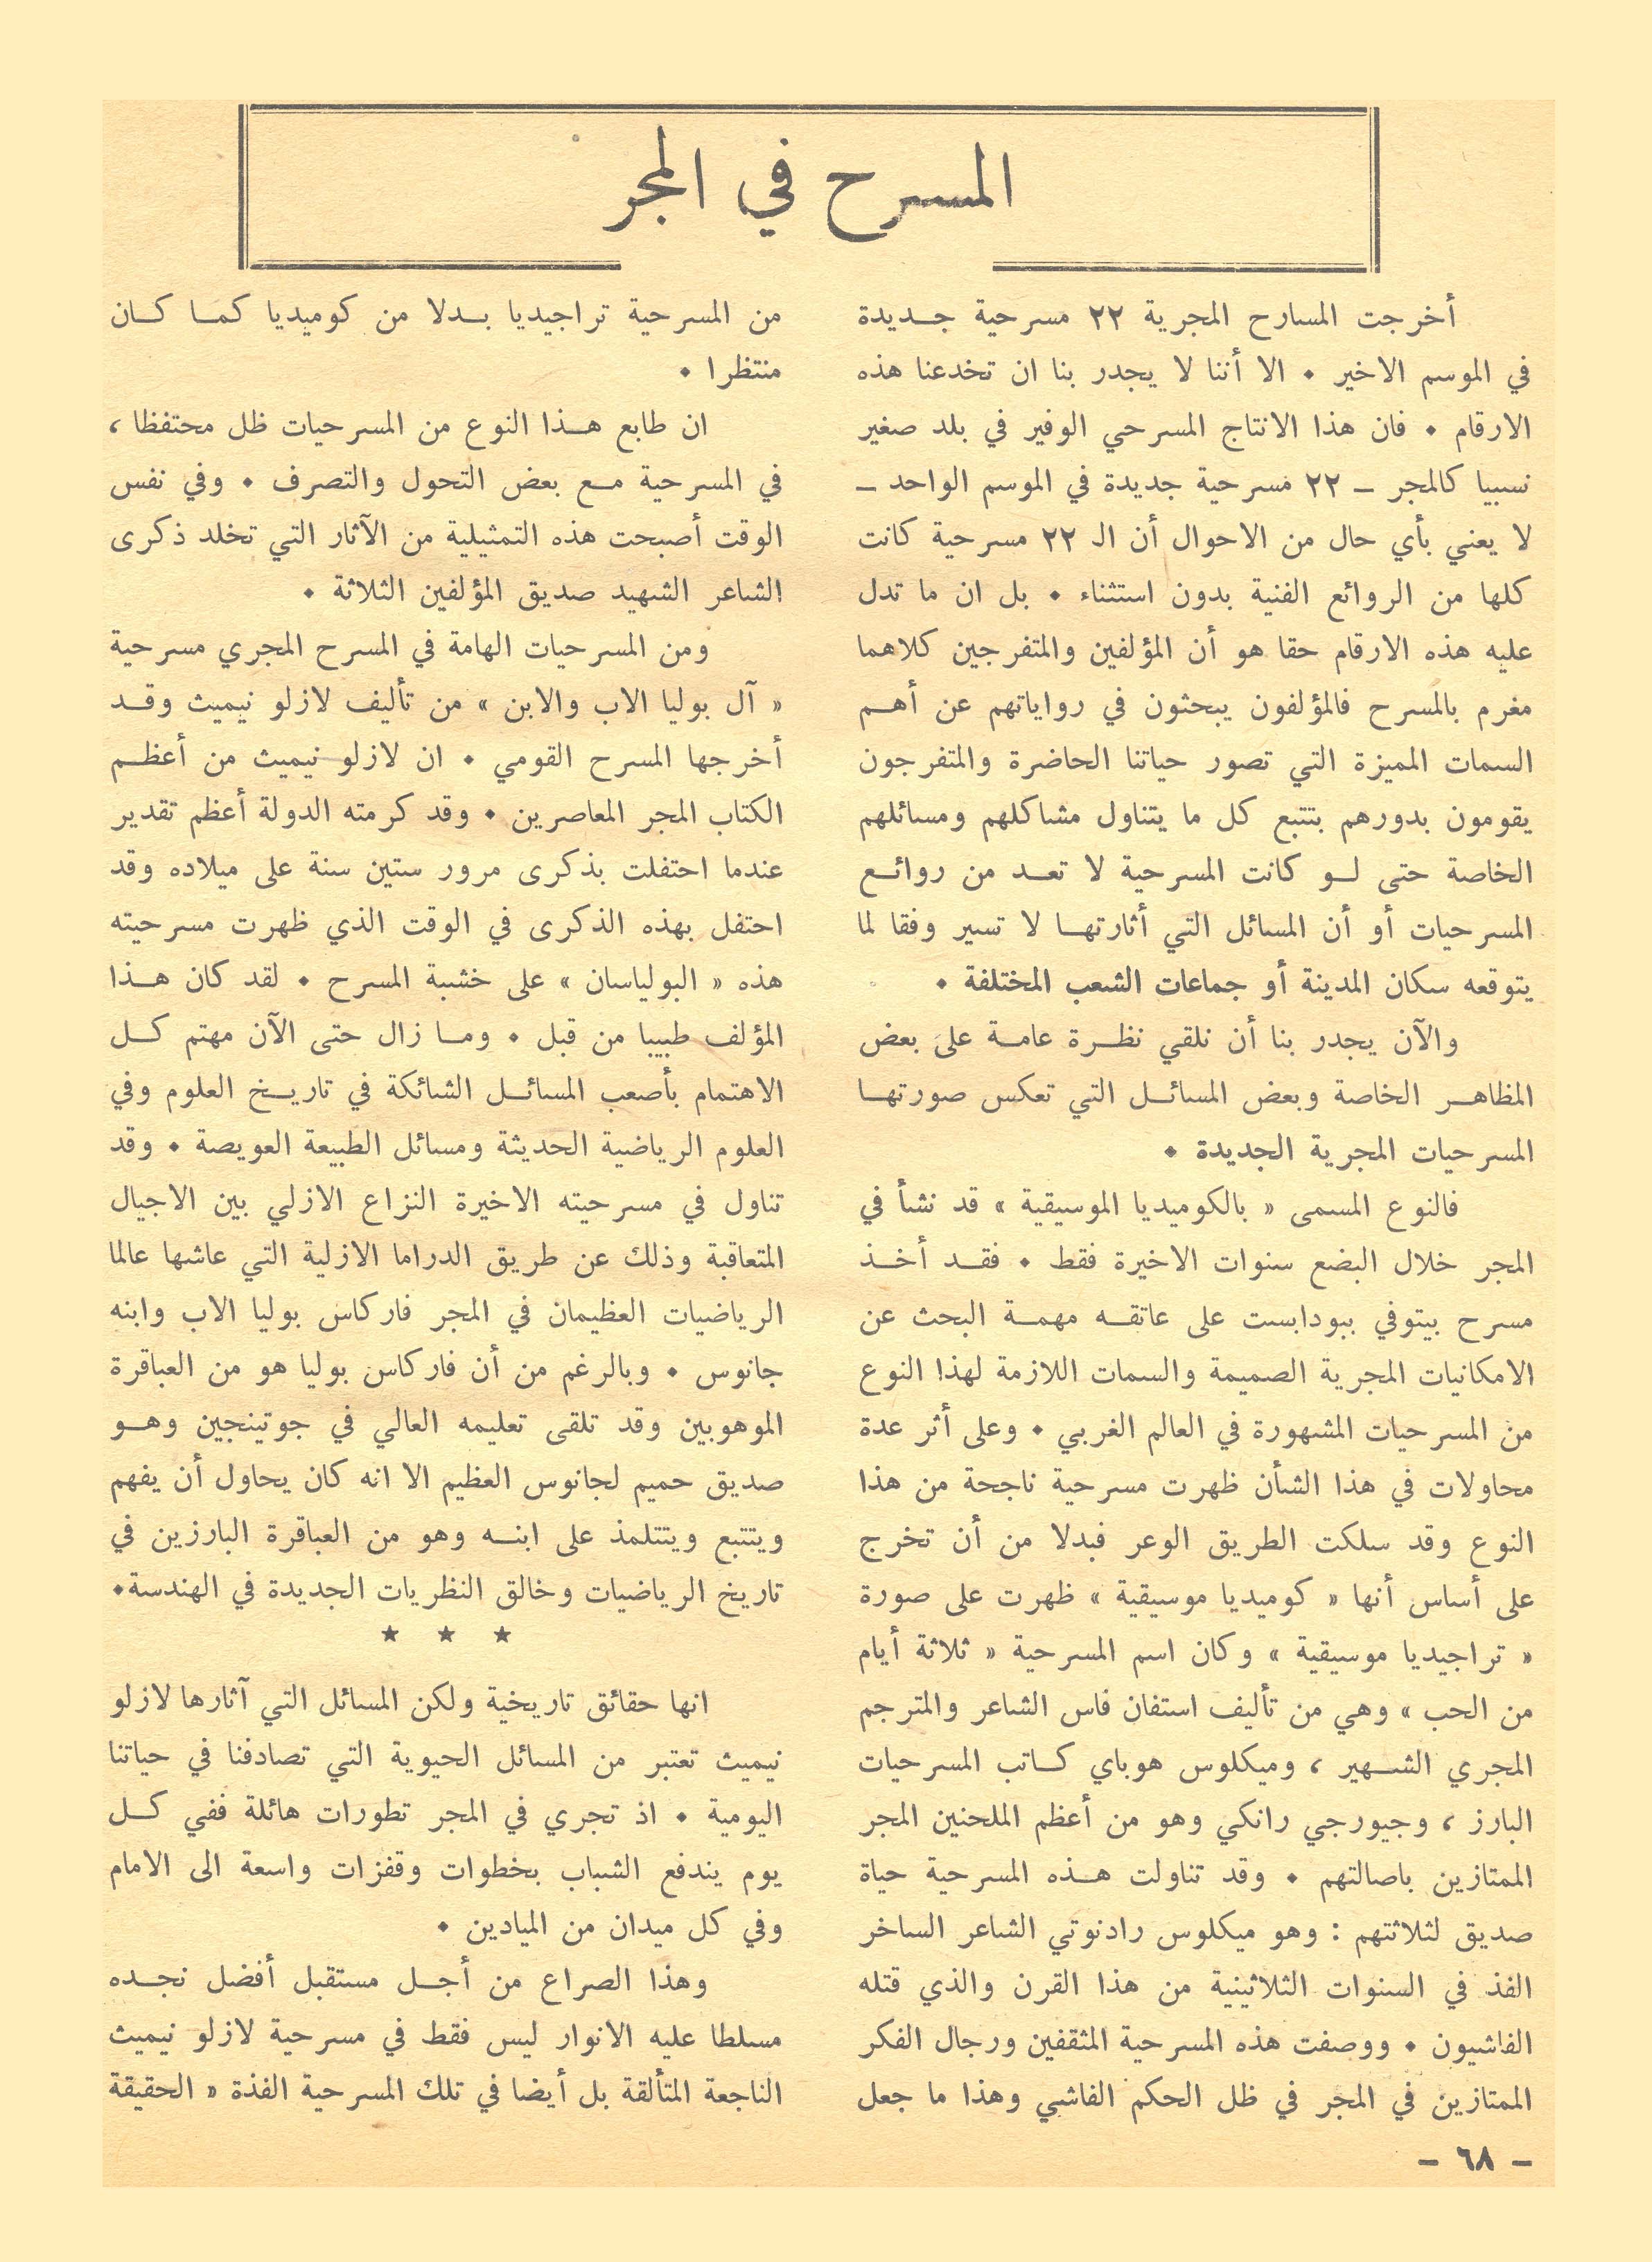 المسرح في المجر
أخرجت المسارح المجرية ٢٢ مسرحية جـديدة
في الموسم الاخير ٠ الا أننا لا يجدر بنا ان تخدعنا هذه
الارقام ٠ فان هذا الانتاج المسرحي الوفير في بلد صغير
نسبيا كالمجر ــ ٢٢ مسرحية جديدة في الموسم الواحد ــ
لا يعني بأي حال من الاحوال أن الـ ٢٢ مسرحية كانت
كلها من الروائع الفنية بدون استثناء ٠ بل ان ما تدل
عليه هذه الارقام حقا هو أن المؤلفين والمتفرجين كلاهما
مغرم بالمسرح فالمؤلفون يبحثون في رواياتهم عن أهـم
السمات المميزة التي تصور حياتنا الحاضرة والمتفرجون
يقومون بدورهم بتتبع كل ما يتناول مشاكلهم ومسائلهم
الخاصة حتى لـو كانت المسرحية لا تعـد من روائـع
المسرحيات أو أن المسائل التي أثارتهـا لا تسير وفقا لما
يتوقعه سكان المدينة أو جماعات الشعب المختلفة ٠
والآن يجدر بنا أن نلقي نظـرة عامـة على بعض
المظاهـر الخاصة وبعض المسائـل التي تعكس صورتهـا
المسرحيات المجرية الجديدة ٠
فالنوع المسمى « بالكوميديا الموسيقية » قد نشأ في
المجر خلال البضع سنوات الاخيرة فقط ٠ فقـد أخـذ
مسرح بيتوفي ببودابست على عاتقـه مهمـة البحث عن
الامكانيات المجرية الصميمة والسمات اللازمة لهذا النوع
من المسرحيات المشهورة في العالم الغربي ٠ وعلى أثر عدة
محاولات في هذا الشأن ظهرت مسرحية ناجحة من هذا
النوع وقد سلكت الطريق الوعر فبدلا من أن تخرج
على أساس أنها « كوميديا موسيقية » ظهرت على صورة
« تراجيديا موسيقية » وكان اسم المسرحية « ثلاثة أيام
من الحب » وهي من تأليف استفان فاس الشاعر والمترجم
المجري الشـهير ، وميكلوس هوباي كـاتب المسرحيات
البارز ، وجيورجي رانكي وهو من أعظم الملحنين المجر
الممتازين باصالتهم ٠ وقد تناولت هـذه المسرحية حياة
صديق لثلاثتهم : وهو ميكلوس رادنوتي الشاعر الساخر
الفذ في السنوات الثلاثينية من هذا القرن والذي قتله
الفاشيون ٠ ووصفت هذه المسرحية المثقفين ورجال الفكر
الممتازين في المجر في ظل الحكم الفاشي وهذا ما جعل
من المسرحية تراجيديا بـدلا من كوميديا كمـا كـان
منتظرا ٠
ان طابع هـذا النوع من المسرحيات ظل محتفظا ،
في المسرحية مـع بعض التحول والتصرف ٠ وفي نفس
الوقت أصبحت هذه التمثيلية من الآثار التي تخلد ذكرى
الشاعر الشهيد صديق المؤلفين الثلاثة ٠
ومن المسرحيات الهامة في المسرح المجري مسرحية
« آل بوليا الاب والابن » من تأليف لازلو نيميث وقـد
أخرجها المسرح القومي ٠ ان لازلو نيميث من أعظـم
الكتاب المجر المعاصرين ٠ وقد كرمته الدولة أعظم تقدير
عندما احتفلت بذكرى مرور ستين سنة على ميلاده وقد
احتفل بهذه الذكرى في الوقت الذي ظهرت مسرحيته
هذه « البولياسان » على خشبة المسرح ٠ لقد كان هـذا
المؤلف طبيبا من قبل ٠ ومـا زال حتى الآن مهتم كـل
الاهتمام بأصعب المسائـل الشائكة في تاريـخ العلوم وفي
العلوم الرياضية الحديثة ومسائل الطبيعة العويصة ٠ وقد
تناول في مسرحيته الاخيرة النزاع الازلي بين الاجيال
المتعاقبة وذلك عن طريق الدراما الازلية التي عاشها عالما
الرياضيات العظيمان في المجر فاركاس بوليا الاب وابنه
جانوس ٠ وبالرغم من أن فاركاس بوليا هو من العباقرة
الموهوبين وقد تلقى تعليمه العالي في جوتينجين وهـو
صديق حميم لجانوس العظيم الا انه كان يحاول أن يفهم
ويتتبع ويتتلمذ على ابنـه وهو من العباقرة البارزين في
تاريخ الرياضيات وخالق النظريات الجديدة في الهندسة٠
★ ★ ★
انها حقائق تاريخية ولكن المسائل التي آثارها لازلو
نيميث تعتبر من المسائل الحيوية التي تصادفنا في حياتنا
اليومية ٠ اذ تجري في المجر تطورات هائلة ففي كـل
يوم يندفع الشباب بخطوات وقفزات واسعة الى الامام
وفي كل ميدان من الميادين ٠
وهذا الصراع من أجـل مستقبل أفضل نجـده
مسلطا عليه الانوار ليس فقط في مسرحية لازلو نيميث
الناجعة المتألقة بل أيضا في تلك المسرحية الفذة « الحقيقة
– ٦٨ –